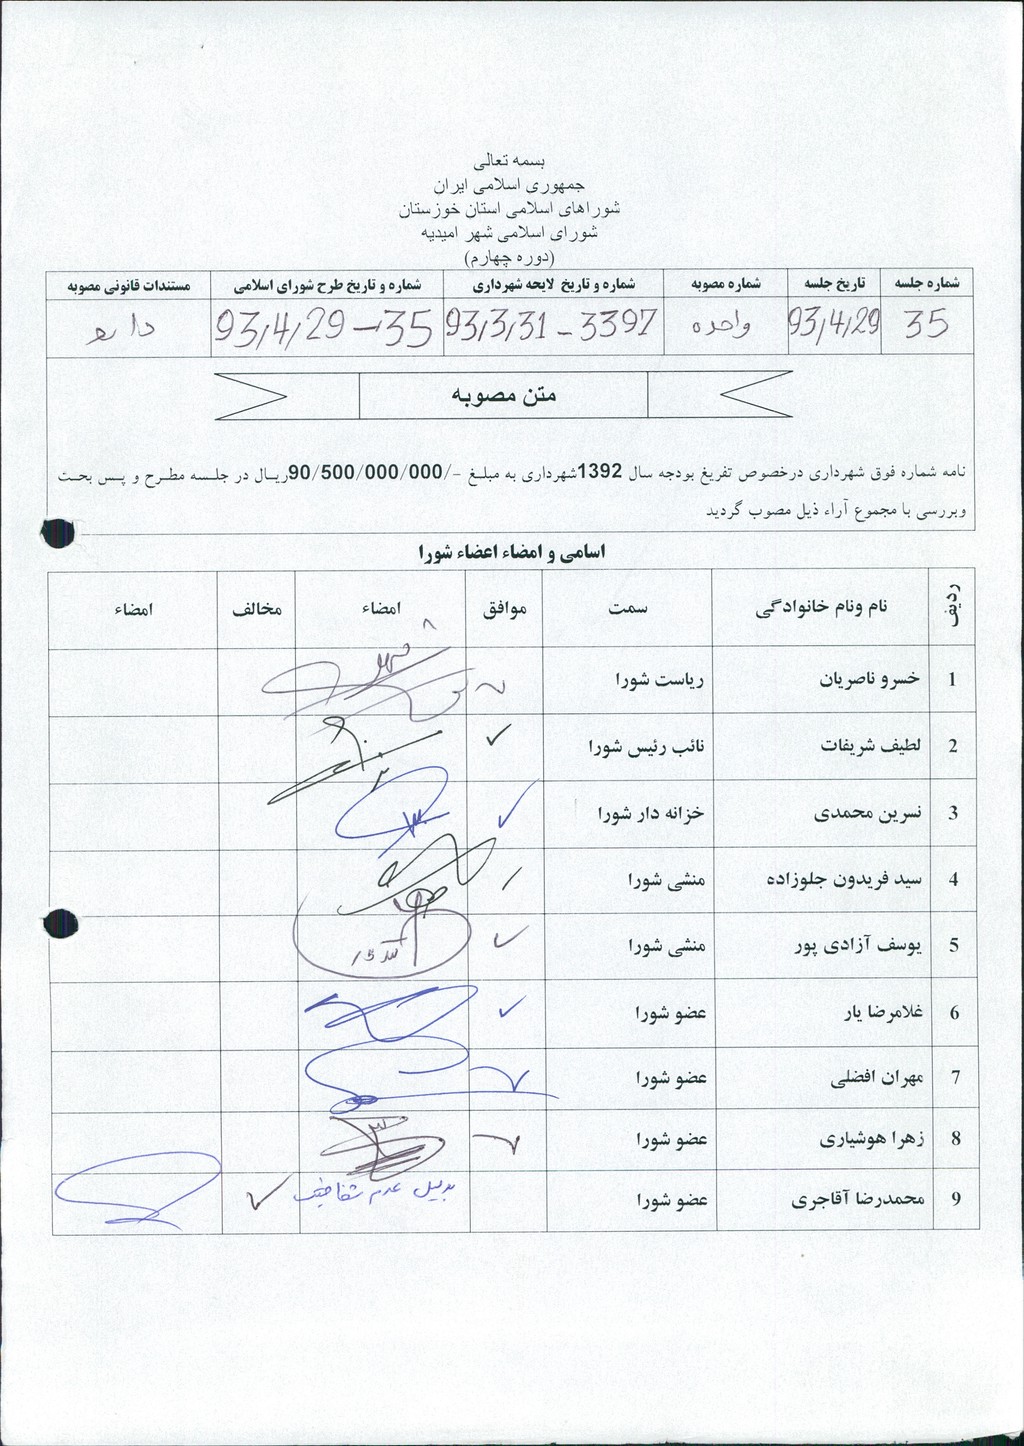 بسمه تعالی
جمهوری اسلامی ایران
شوراهای اسلامی استان خوزستان
شورای اسلامی شهر امیدیه
(دوره چهارم)
شماره جلسه تاریخ جلسه شماره مصوبه شماره و تاریخ لایحه شهرداری شماره و تاریخ طرح شورای اسلامی مستندات قانونی مصوبه
35 93/4/29 واحده 3397 - 93/3/31 35 - 93/4/29 دارد
متن مصوبه
نامه شماره فوق شهرداری درخصوص تفریغ بودجه سال 1392شهرداری به مبلغ -/90/500/000/000ریال در جلسه مطرح و پس بحث
وبررسی با مجموع آراء ذیل مصوب گردید
اسامی و امضاء اعضاء شورا
ردیف نام ونام خانوادگی سمت موافق امضاء مخالف امضاء
1 خسرو ناصریان ریاست شورا
2 لطیف شریفات نائب رئیس شورا
3 نسرین محمدی خزانه دار شورا
4 سید فریدون جلوزاده منشی شورا
5 یوسف آزادی پور منشی شورا
6 غلامرضا یار عضو شورا
7 مهران افضلی عضو شورا
8 زهرا هوشیاری عضو شورا
9 محمدرضا آقاجری عضو شورا بدلیل عدم شفافیت